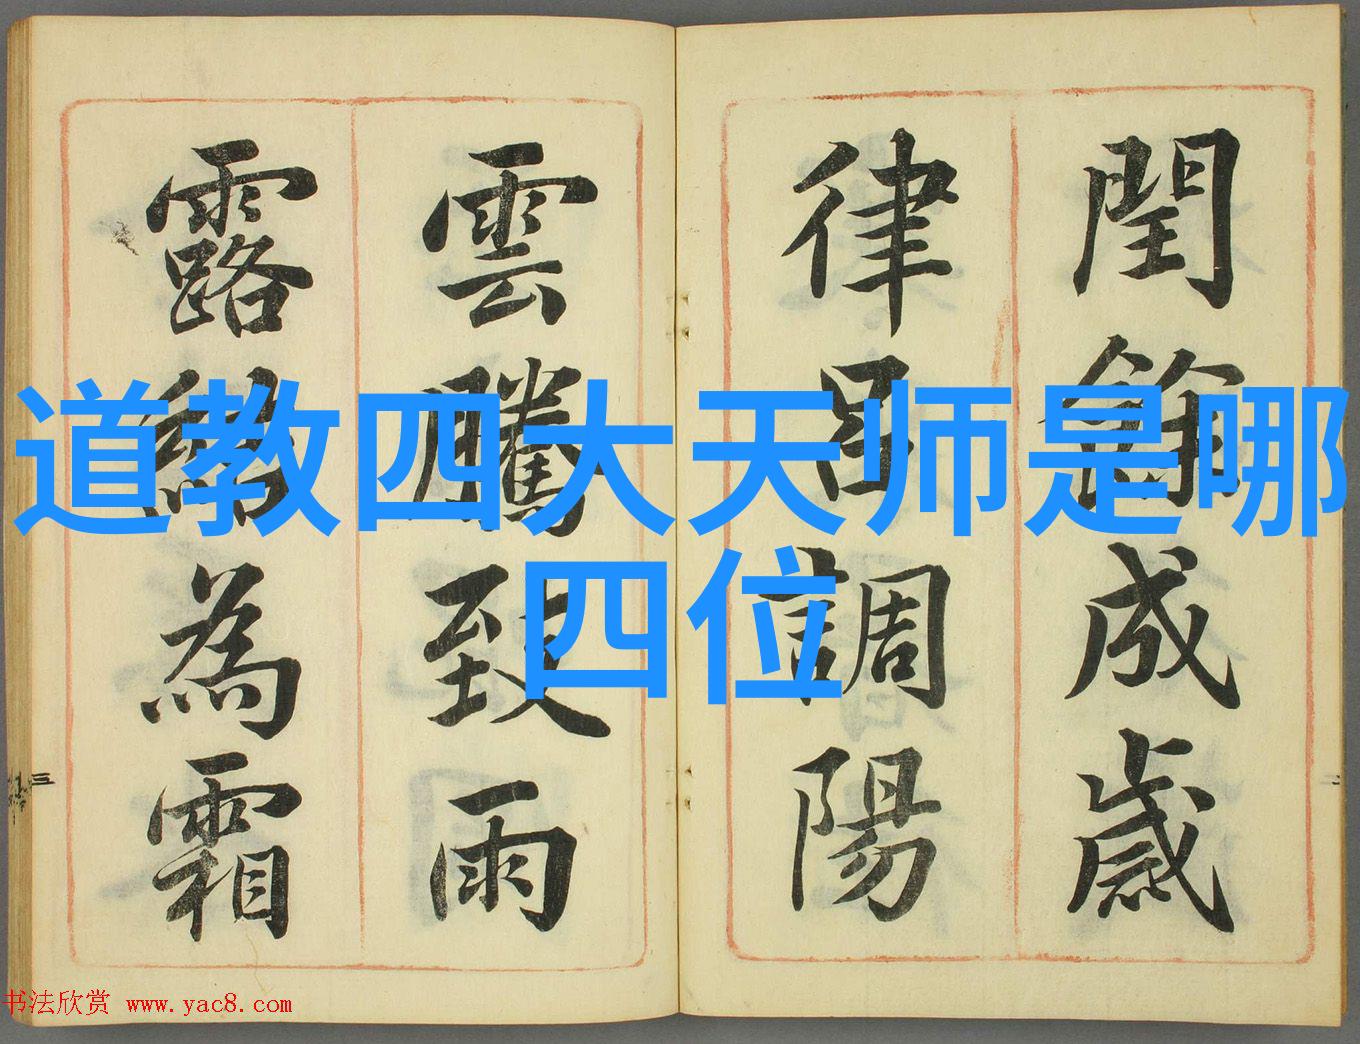 閏餘成歲
律呂調陽
雲騰致雨
露結為霜
道教四大天师是哪
四位
三
书法欣赏 www.yac8.com